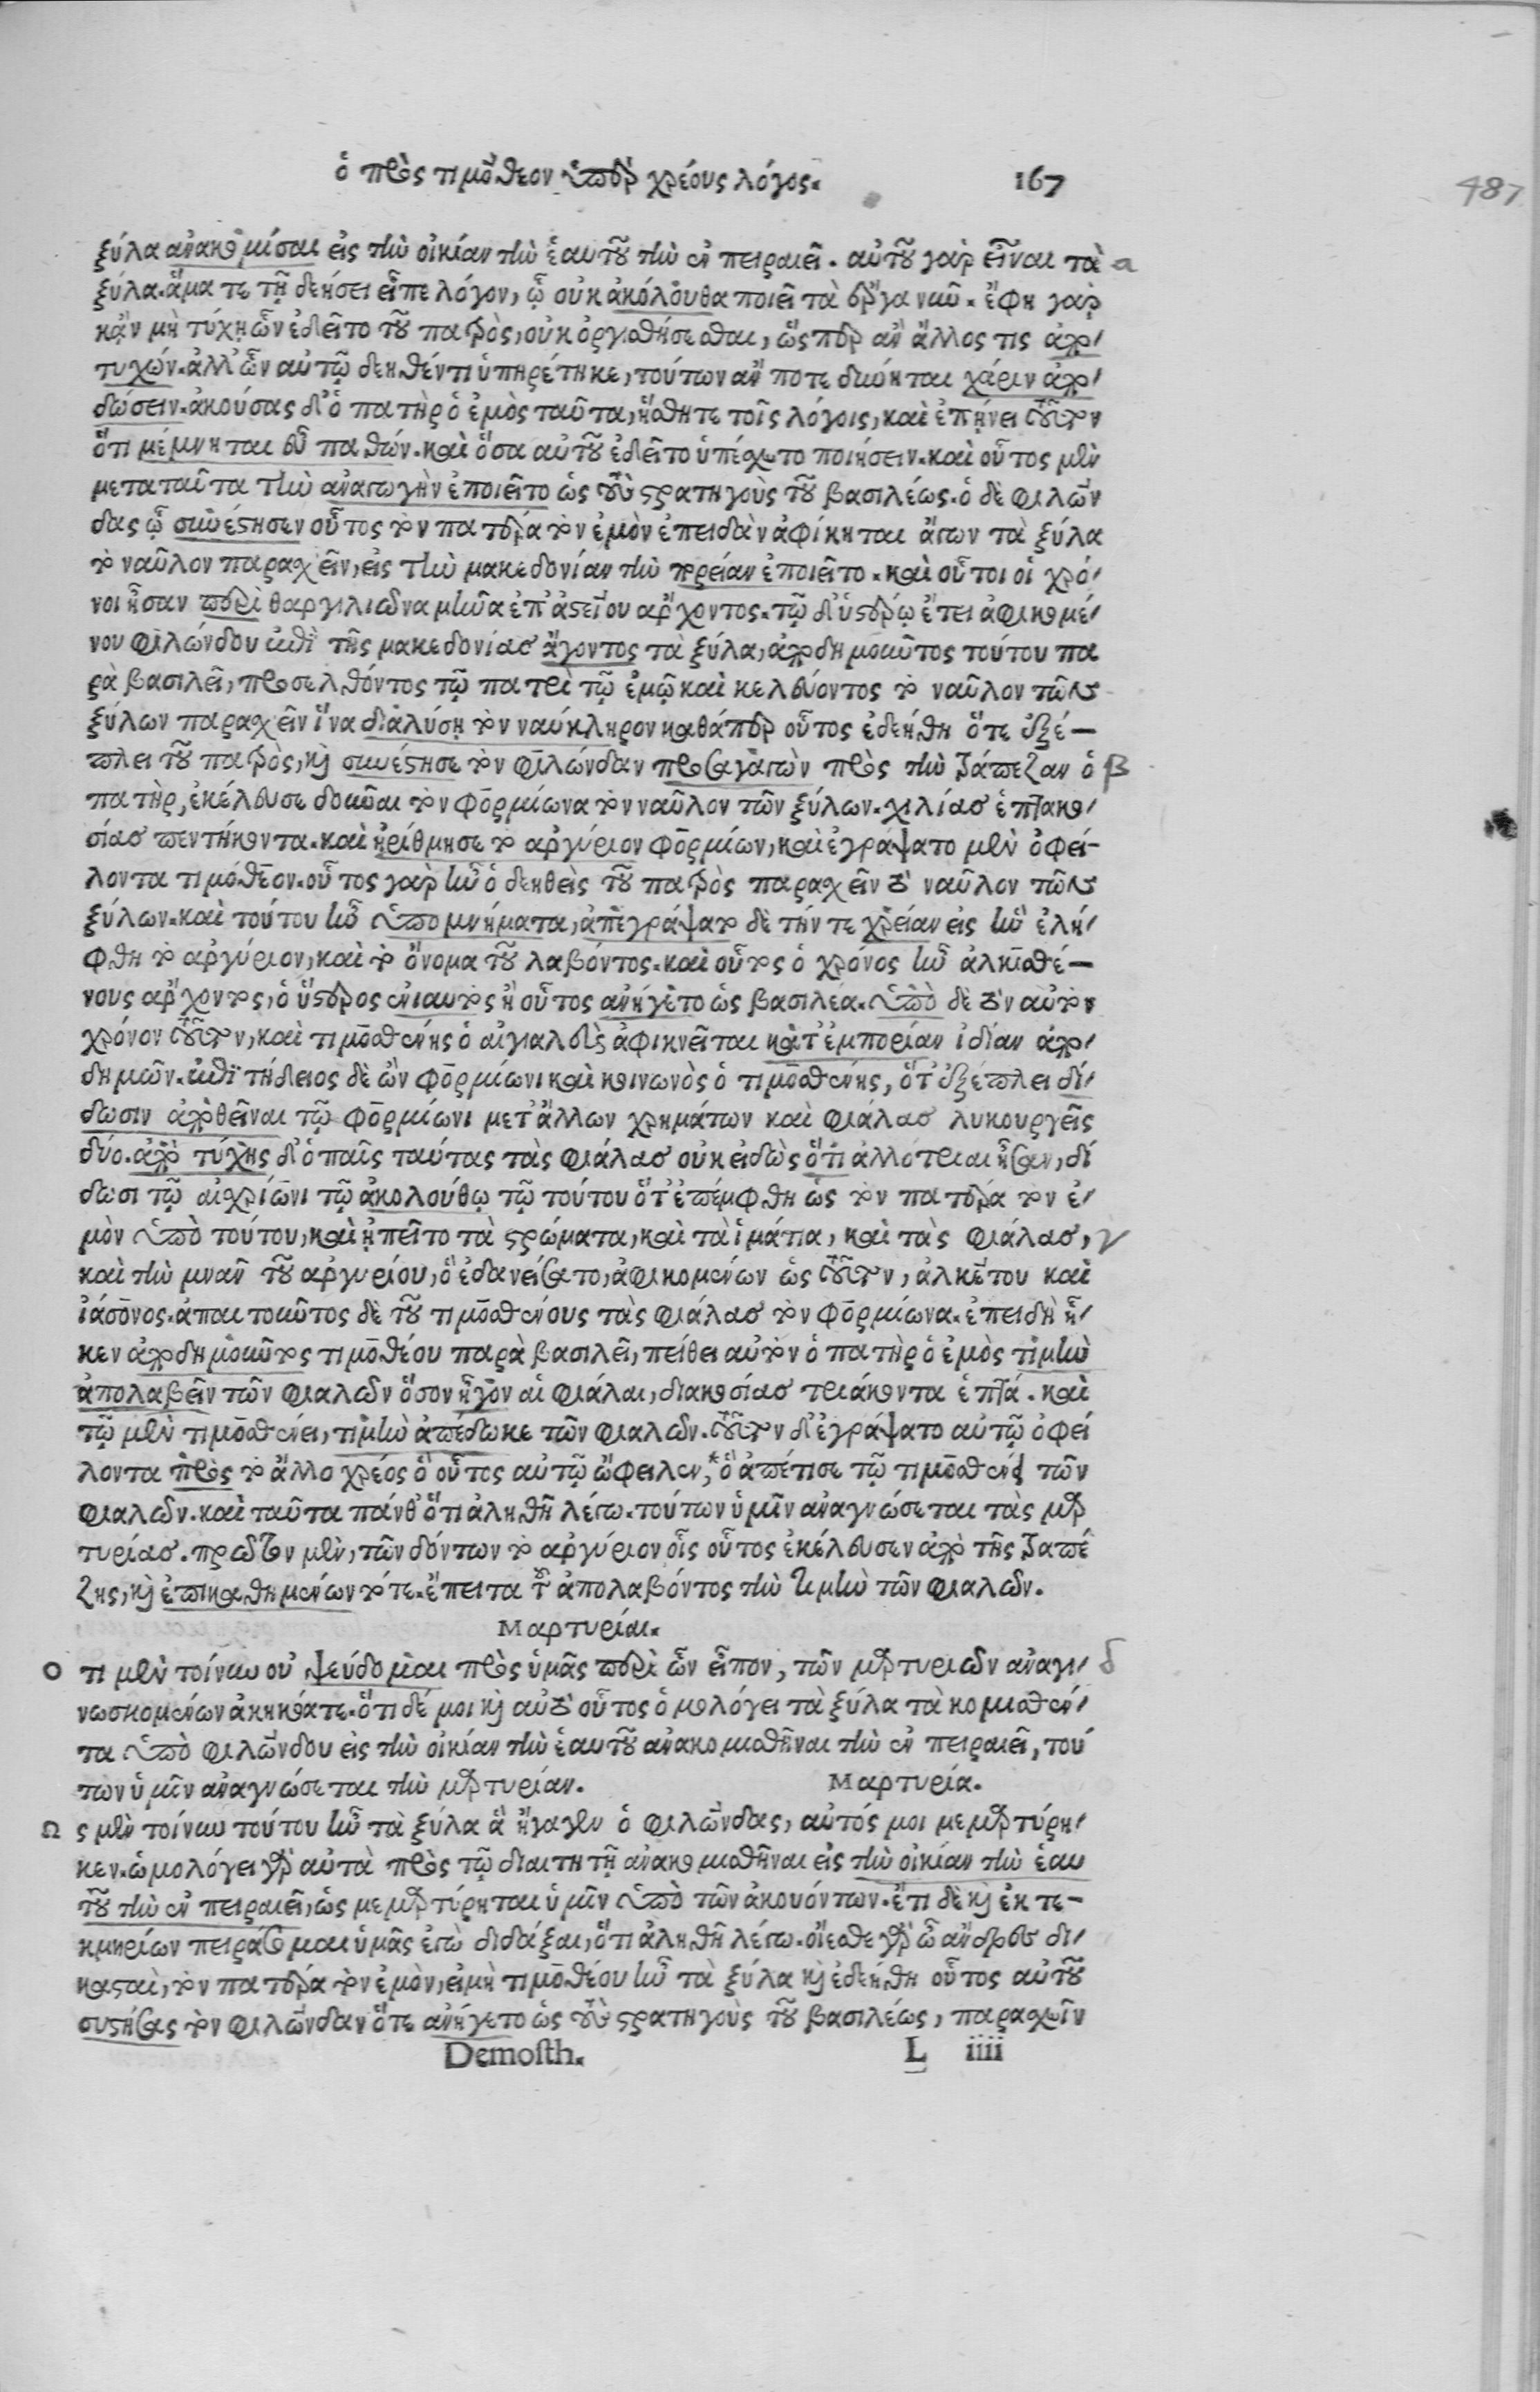 ὁ πρὸς τιμόθεον ὑπὲρ χρέους λόγος. 167
487
ξύλα ἀνακομίσαι εἰς τὴν οἰκίαν τὴν ἑαυτοῦ τὴν ἐν πειραιεῖ. αὑτοῦ γὰρ εἶναι τὰ α
ξύλα. ἅμα τε τῇ δεήσει εἶπε λόγον, ᾧ οὐκ ἀκόλουθα ποιεῖ τὰ ἔργα νῦν. ἔφη γὰρ
κἂν μὴ τύχῃ ὧν ἐδεῖτο τοῦ πατρὸς, οὐκ ὀργισθήσεσθαι, ὥσπερ ἂν ἄλλος τις ἀπο-
τυχών. ἀλλ' ὧν αὐτῷ δεηθέντι ὑπηρέτηκε, τούτων ἄν ποτε δύνηται χάριν ἀπο-
δώσειν. ἀκούσας δ' ὁ πατὴρ ὁ ἐμὸς ταῦτα, ἥσθητε τοῖς λόγοις, καὶ ἐπῄνει τοῦτον
ὅτι μέμνηται εὖ παθών. καὶ ὅσα αὐτοῦ ἐδεῖτο ὑπέσχετο ποιήσειν. καὶ οὗτος μὲν
μεταταῦτα τὴν ἀναγωγὴν ἐποιεῖτο ὡς τοὺς στρατηγοὺς τοῦ βασιλέως. ὁ δὲ φιλών
δας ᾧ συνέστησεν οὗτος τὸν πατέρα τὸν ἐμὸν ἐπειδὰν ἀφίκηται ἄγων τὰ ξύλα
τὸ ναῦλον παρασχεῖν, εἰς τὴν μακεδονίαν τὴν πορείαν ἐποιεῖτο. καὶ οὗτοι οἱ χρό-
νοι ἦσαν περὶ θαργηλιῶνα μῆνα ἐπ' ἀστείου ἄρχοντος. τῷ δ' ὑστέρῳ ἔτει ἀφικομέ-
νου φιλώνδου ἐπὶ τῆς μακεδονίας ἄγοντος τὰ ξύλα, ἀποδημοῦντος τούτου πα
ρὰ βασιλεῖ, προσελθόντος τῷ πατρὶ τῷ ἐμῷ καὶ κελεύοντος τὸ ναῦλον τῶν
ξύλων παρασχεῖν ἵνα διαλύσῃ τὸν ναύκληρον καθάπερ οὗτος ἐδεήθη ὅτε ἐξέ-
πλει τοῦ πατρὸς, καὶ συνέστησε τὸν φιλώνδαν προσαγαγὼν πρὸς τὴν τράπεζαν ὁ β
πατὴρ, ἐκέλευσε δοῦναι τὸν φορμίωνα τὸν ναῦλον τῶν ξύλων. χιλίας ἑπτακο-
σίας πεντήκοντα. καὶ ἠρίθμησε τὸ ἀργύριον φορμίων, καὶ ἐγράψατο μὲν ὀφεί-
λοντα τιμόθεον. οὗτος γὰρ ἦν ὁ δεηθεὶς τοῦ πατρὸς παρασχεῖν τὸ ναῦλον τῶν
ξύλων. καὶ τούτου ἦν ὑπομνήματα, ἀπεγράψατο δὲ τήν τε χρείαν εἰς ἣν ἐλή-
φθη τὸ ἀργύριον, καὶ τὸ ὄνομα τοῦ λαβόντος. καὶ οὗτος ὁ χρόνος ἦν ἀλκισθέ-
νους ἄρχοντος, ὁ ὕστερος ἐνιαυτὸς ἢ οὗτος ἀνήγετο ὡς βασιλέα. ὑπὸ δὲ τὸν αὐτὸν
χρόνον τοῦτον, καὶ τιμοσθένης ὁ αἰγιαλεὺς ἀφικνεῖται κατ' ἐμπορίαν ἰδίαν ἀπο-
δημῶν. ἐπιτήδειος δὲ ὢν φορμίωνι καὶ κοινωνὸς ὁ τιμοσθένης, ὅτ' ἐξέπλει δί-
δωσιν ἀποθεῖναι τῷ φορμίωνι μετ' ἄλλων χρημάτων καὶ φιάλας λυκουργεῖς
δύο. ἀπὸ τύχης δ' ὁ παῖς ταύτας τὰς φιάλας οὐκ εἰδὼς ὅτι ἀλλότριαι ἦσαν, δί
δωσι τῷ αἰσχρίωνι τῷ ἀκολούθῳ τῷ τούτου ὅτ' ἐπέμφθη ὡς τὸν πατέρα τὸν ἐ-
μὸν ὑπὸ τούτου, καὶ ᾐτεῖτο τὰ στρώματα, καὶ τὰ ἱμάτια, καὶ τὰς φιάλας, γ
καὶ τὴν μνᾶν τοῦ ἀργυρίου, ὃ ἐδανείσατο, ἀφικομένων ὡς τοῦτον, ἀλκέτου καὶ
ἰάσονος. ἀπαιτοῦντος δὲ τοῦ τιμοσθένους τὰς φιάλας τὸν φορμίωνα. ἐπειδὴ ἧ-
κεν ἀποδημοῦντος τιμοθέου παρὰ βασιλεῖ, πείθει αὐτὸν ὁ πατὴρ ὁ ἐμὸς τιμὴν
ἀπολαβεῖν τῶν φιαλῶν ὅσον ἦγον αἱ φιάλαι, διακοσίας τριάκοντα ἑπτά. καὶ
τῷ μὲν τιμοσθένει, τιμὴν ἀπέδωκε τῶν φιαλῶν. τοῦτον δ' ἐγράψατο αὐτῷ ὀφεί
λοντα πρὸς τὸ ἄλλο χρέος ὃ οὗτος αὐτῷ ὤφειλεν,* ὃ ἀπέτισε τῷ τιμοσθένει τῶν
φιαλῶν. καὶ ταῦτα πάνθ' ὅτι ἀληθῆ λέγω. τούτων ὑμῖν ἀναγνώσεται τὰς μαρ
τυρίας. πρῶτον μὲν, τῶν δόντων τὸ ἀργύριον οἷς οὗτος ἐκέλευσεν ἀπὸ τῆς τραπέ
ζης, καὶ ἐπικαθημένων τότε. ἔπειτα τοῦ ἀπολαβόντος τὴν τιμὴν τῶν φιαλῶν.
Μαρτυρίαι.
Ο τι μὲν τοίνυν οὐ ψεύδομαι πρὸς ὑμᾶς περὶ ὧν εἶπον, τῶν μαρτυριῶν ἀναγι- δ
νωσκομένων ἀκηκόατε. ὅτι δέ μοι καὶ αὐτὸ οὗτος ὁμολόγει τὰ ξύλα τὰ κομισθέν-
τα ὑπὸ φιλώνδου εἰς τὴν οἰκίαν τὴν ἑαυτοῦ ἀνακομισθῆναι τὴν ἐν πειραιεῖ, τού
των ὑμῖν ἀναγνώσεται τὴν μαρτυρίαν. Μαρτυρία.
Ω ς μὲν τοίνυν τούτου ἦν τὰ ξύλα ἃ ἤγαγεν ὁ φιλώνδας, αὐτός μοι μεμαρτύρη-
κεν. ὡμολόγει γὰρ αὐτὰ πρὸς τῷ διαιτητῇ ἀνακομισθῆναι εἰς τὴν οἰκίαν τὴν ἑαυ
τοῦ τὴν ἐν πειραιεῖ, ὡς μεμαρτύρηται ὑμῖν ὑπὸ τῶν ἀκουόντων. ἔτι δὲ καὶ ἐκ τε-
κμηρίων πειράσομαι ὑμᾶς ἐγὼ διδάξαι, ὅτι ἀληθῆ λέγω. οἴεσθε γὰρ ὦ ἄνδρες δι-
κασταὶ, τὸν πατέρα τὸν ἐμὸν, εἰ μὴ τιμοθέου ἦν τὰ ξύλα καὶ ἐδεήθη οὗτος αὐτοῦ
συστήσας τὸν φιλώνδαν ὅτε ἀνήγετο ὡς τοὺς στρατηγοὺς τοῦ βασιλέως, παρασχεῖν
Demosth. L iiii